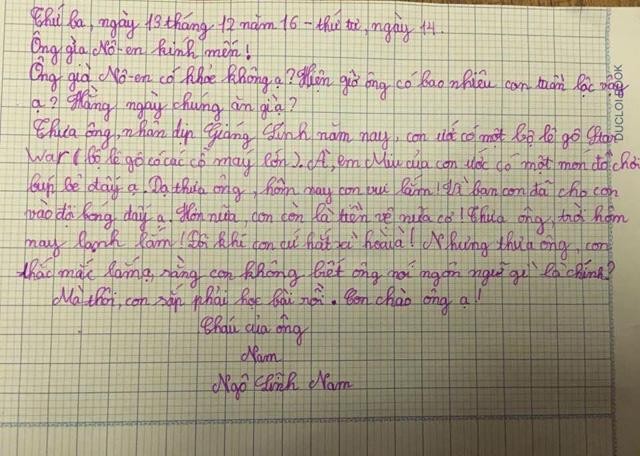 Thứ ba, ngày 13 tháng 12 năm 16 - thứ tư, ngày 14.
Ông già Nô-en kính mến!
Ông già Nô-en có khoẻ không ạ? Hiện giờ ông có bao nhiêu con tuần lộc vậy
ạ? Hằng ngày chúng ăn gì ạ?
Thưa ông, nhân dịp Giáng Sinh năm nay, con ước có một bộ lê gô Star
War (bộ lê gô có các cỗ máy lớn). À, em Miu của con ước có một món đồ chơi
búp bê đấy ạ. Dạ thưa ông, hôm nay con vui lắm! Vì bạn con đã cho con
vào đội bóng đấy ạ. Hơn nữa, con còn là tiền vệ nữa cơ! Thưa ông, trời hôm
nay lạnh lắm! Đôi khi con cứ hắt xì hoài à! Nhưng thưa ông, con
thắc mắc lắm ạ, rằng con không biết ông nói ngôn ngữ gì là chính?
Mà thôi, con sắp phải học bài rồi. Con chào ông ạ!
Cháu của ông
Nam
Ngô Lĩnh Nam
DUCLOIBOOK